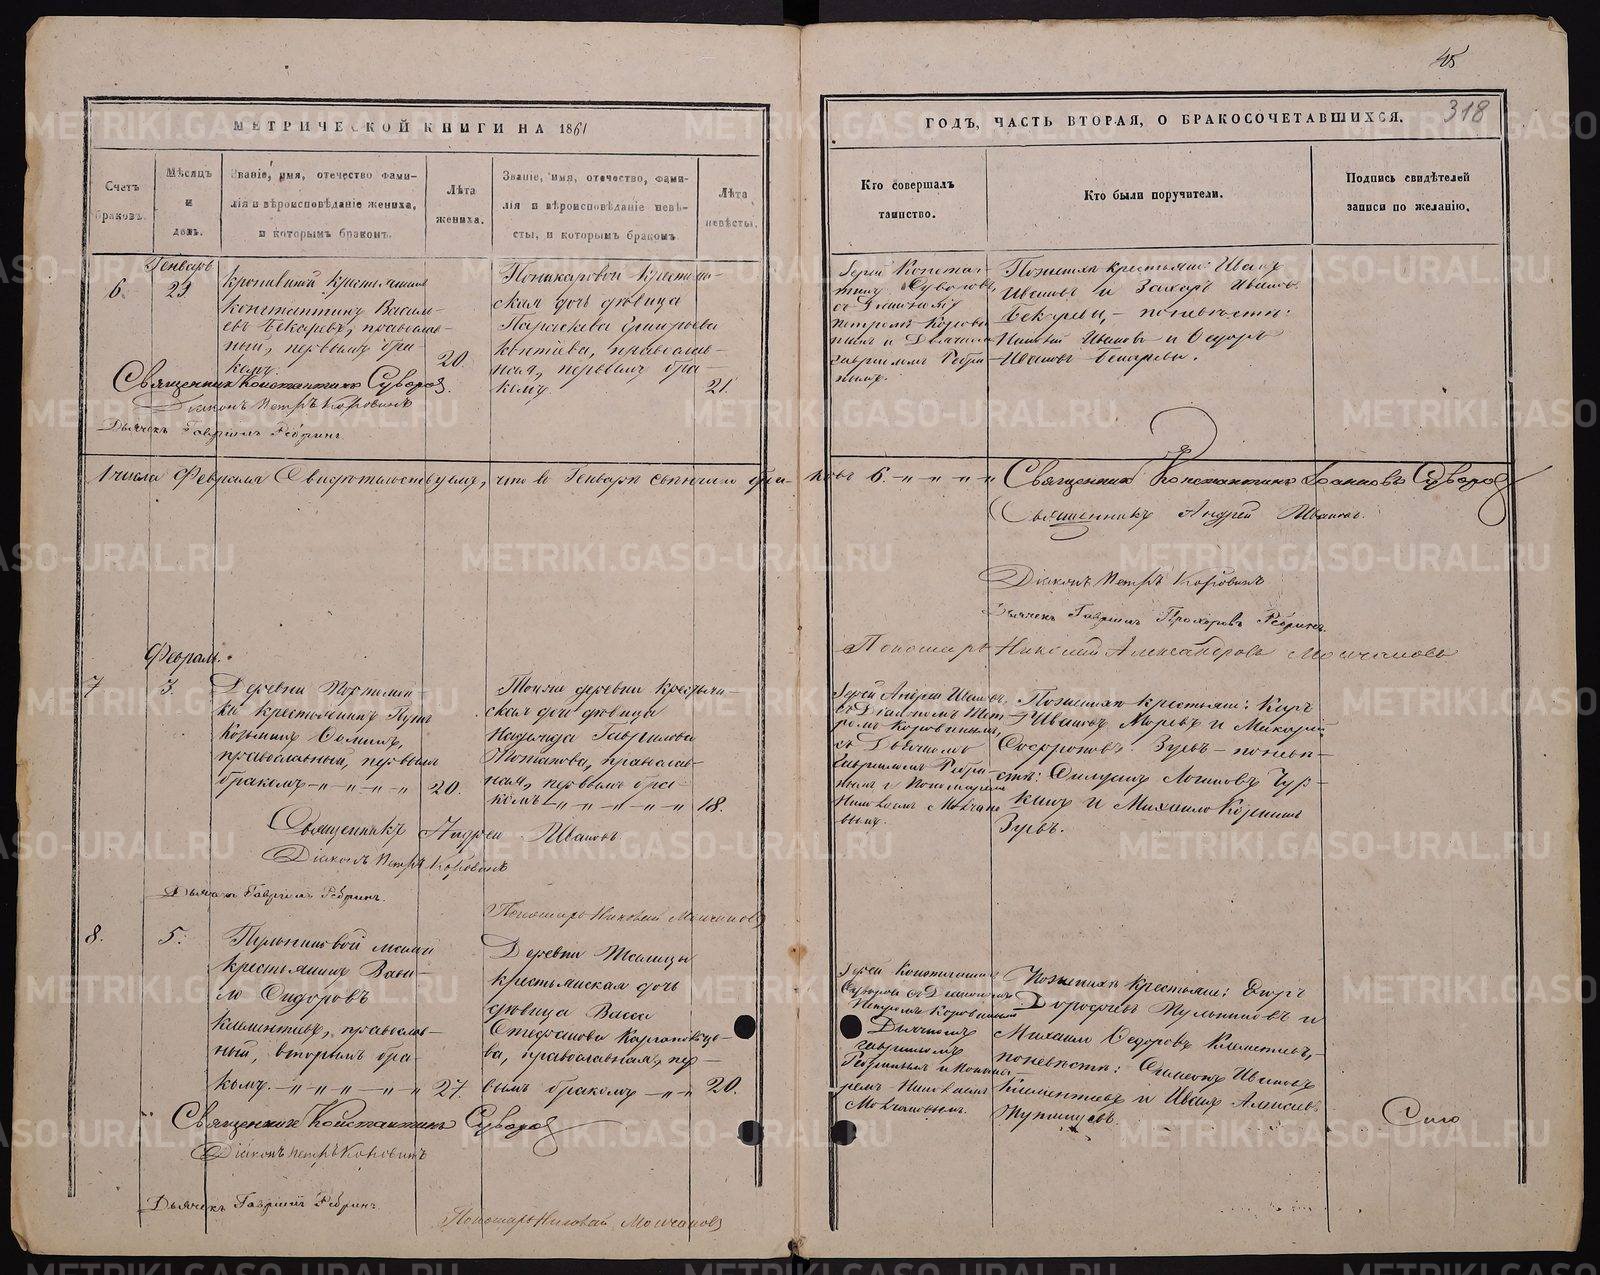 45
318
МЕТРИЧЕСКОЙ КНИГИ НА 1861
ГОДЪ, ЧАСТЬ ВТОРАЯ, О БРАКОСОЧЕТАВШИХСЯ.
Счетъ браковъ.
Мѣсяцъ и день.
Званіе, имя, отечество, фами-
лія и вѣроисповѣданіе жениха,
и которымъ бракомъ.
Лѣта жениха.
Званіе, имя, отечество, фами-
лія и вѣроисповѣданіе невѣ-
сты, и которымъ бракомъ.
Лѣта невѣсты.
Кто совершалъ
таинство.
Кто были поручители.
Подпись свидѣтелей
записи по желанію.
Генварь
6.
29
крестьянинъ
Константинъ Василь-
евъ Бекаревъ, православ-
ный, первымъ бра-
комъ.
20.
крестьян-
ская дочь дѣвица
Параскева Григорьева
православ-
ная, первымъ бра-
комъ.
21.
Іерей Констан-
тинъ Суворовъ,
съ Діакономъ
Петромъ Корови-
нымъ и Дьячкомъ
Гавріиломъ Ребри-
нымъ.
По женихѣ крестьяне: Иванъ
Ивановъ и Захаръ Ивановъ
Бекаревы, – по невѣстѣ:
Ивановъ и Ѳедоръ
Ивановъ Бекаревы.
Священникъ Константинъ Суворовъ.
Діаконъ Петръ Коровинъ
Дьячекъ Гавріилъ Ребринъ.
1 числа Февраля Свидѣтельствуемъ, что въ Генварѣ бра-
ковъ 6. – „ – „ – „ – „ Священникъ Константинъ Іоанновъ Суворовъ
Священникъ Андрей Ивановъ.
Діаконъ Петръ Коровинъ
Дьячекъ Гавріилъ Прохоровъ Ребринъ.
Пономарь Николай Александровъ Молчановъ
Февраль.
7
3.
Деревни
крестьянинъ
Козьминъ
православный, первымъ
бракомъ – „ – „ – „ – „
20.
Тоя же деревни крестьян-
ская дочь дѣвица
Надежда Гаврилова
православ-
ная, первымъ бра-
комъ – „ – „ – „ – „
18.
Іерей Андрей Ивановъ,
съ Діакономъ Пет-
ромъ Коровинымъ,
съ Дьячкомъ
Гавріиломъ Ребри-
нымъ и Пономаремъ
Николаемъ Молчано-
вымъ.
По женихѣ крестьяне: Киръ
Ивановъ и Макарій
Софроновъ Зуевъ – по невѣ-
стѣ: Логиновъ Чур-
кинъ и Михаило Козьминъ
Зуевъ.
Священникъ Андрей Ивановъ.
Діаконъ Петръ Коровинъ
Дьячекъ Гавріилъ Ребринъ.
Пономарь Николай Молчановъ
8.
5.
крестьянинъ Вави-
ло Сидоровъ
Клементьевъ, православ-
ный, вторымъ бра-
комъ. – „ – „ – „ – „
27.
Деревни
крестьянская дочь
дѣвица Васса
Стефанова
ва, православная, пер-
вымъ бракомъ – „ – „
20.
Іерей Константинъ
Суворовъ съ Діакономъ
Петромъ Коровинымъ
Дьячкомъ
Гавріиломъ
Ребринымъ и Понома-
ремъ Николаемъ
Молчановымъ.
По женихѣ крестьяне:
Дорофеевъ и
Михаило Ѳедоровъ Клементьевъ,
по невѣстѣ: Симеонъ Ивановъ
Клементьевъ и Иванъ Алексѣевъ
Священникъ Константинъ Суворовъ
Діаконъ Петръ Коровинъ
Дьячекъ Гавріилъ Ребринъ
Пономарь Николай Молчановъ